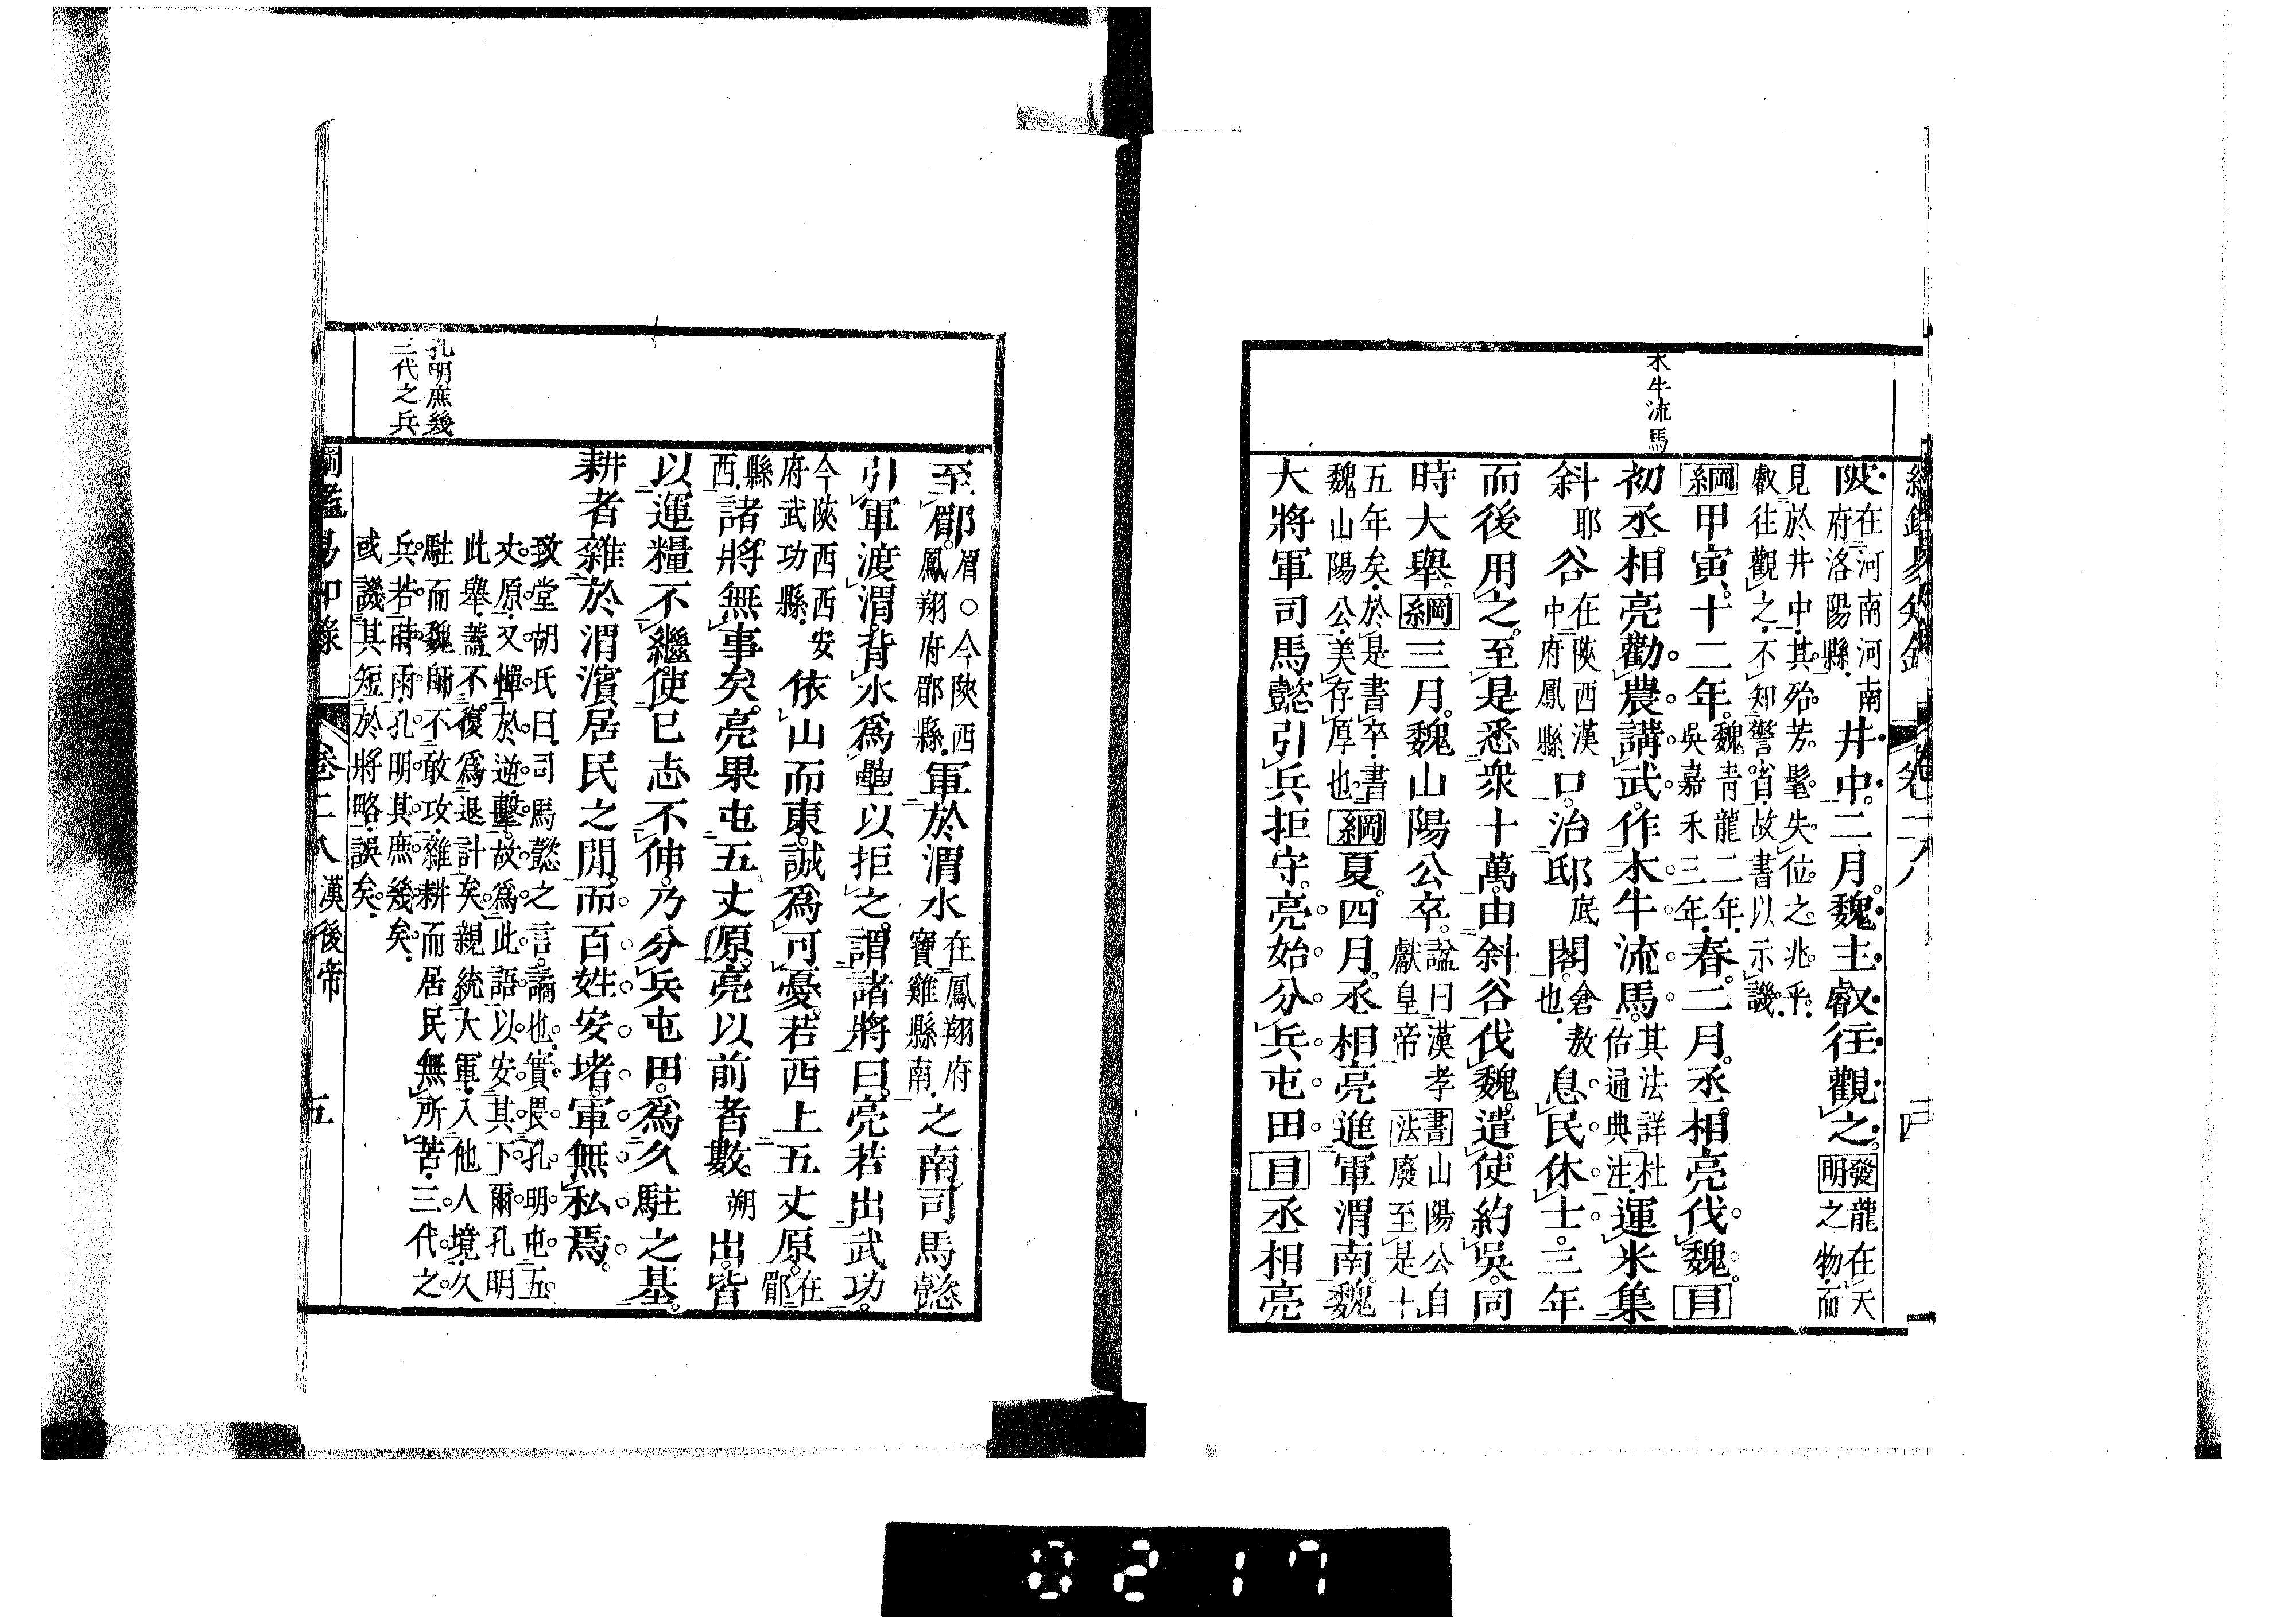 木牛流馬
陂在河南河南府洛陽縣井中二月魏主叡往觀之發明龍在天之物而
見於井中其殆芳髦失位之兆乎
叡往觀之不知警省故書以示譏
綱甲寅十二年魏青龍二年吳嘉禾三年春二月丞相亮伐魏目
初丞相亮勸農講武作木牛流馬其法詳杜佑通典注運米集
斜耶谷在陝西漢中府鳳縣口治邸底閣倉敖也息民休士三年
而後用之至是悉衆十萬由斜谷伐魏遣使約吳同
時大舉綱三月魏山陽公卒諡曰漢孝獻皇帝書法山陽公自廢至是十
五年矣於是書卒書魏山陽公美存厚也綱夏四月丞相亮進軍渭南魏
大將軍司馬懿引兵拒守亮始分兵屯田目丞相亮
卷二八
四
至郿眉○今陝西鳳翔府郿縣軍於渭水在鳳翔府寶雞縣南之南司馬懿
引軍渡渭背水爲壘以拒之謂諸將曰亮若出武功
今陝西西安府武功縣依山而東誠爲可憂若西上五丈原在郿
縣西諸將無事矣亮果屯五丈原亮以前者數朔出皆
以運糧不繼使己志不伸乃分兵屯田爲久駐之基
耕者雜於渭濱居民之閒而百姓安堵軍無私焉
致堂胡氏曰司馬懿之言譎也實畏孔明屯五
丈原又憚於逆擊故爲此語以安其下爾孔明
此舉蓋不復爲退計矣親統大軍入他人境久
駐而魏師不敢攻雜耕而居民無所苦三代之
兵若時雨孔明其庶幾矣
或譏其短於將略誤矣
孔明庶幾
三代之兵
綱鑑易知錄
卷二八
漢後帝
五
0217